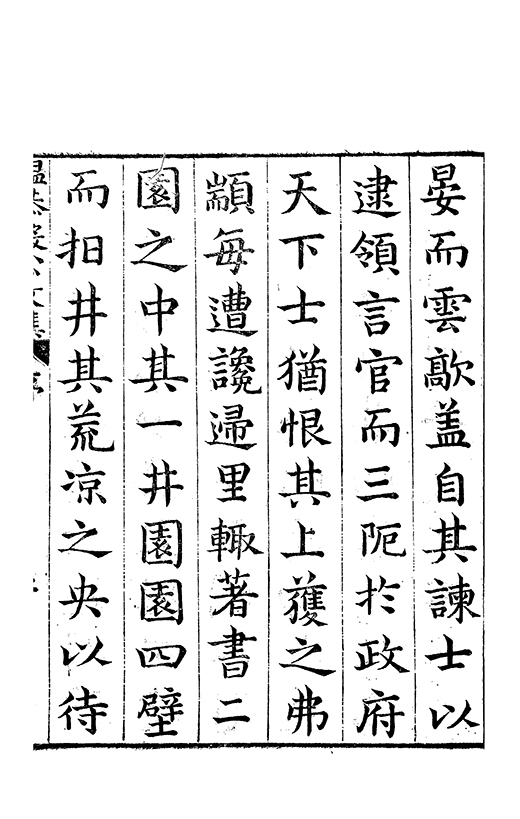 晏而雲歊盖自其諫士以
逮領言官而三阨扵政府
天下士猶恨其上獲之弗
顓每遭讒歸里輙著書二
園之中其一井園園四壁
而㫜井其荒凉之央以待